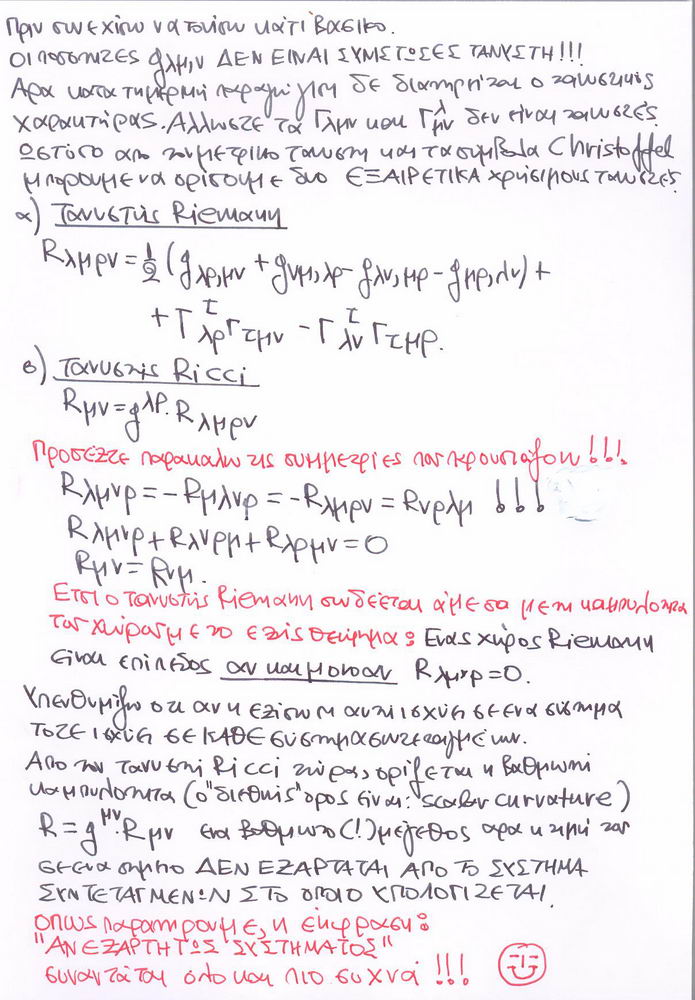 Πριν συνεχίσω να τονίσω κάτι βασικο.
ΟΙ ποσοτητες gλμ,ν ΔΕΝ ΕΙΝΑΙ ΣΥΝΙΣΤΩΣΕΣ ΤΑΝΥΣΤΗ!!!
Αρα κατα τη μερική παραγώγιση δε διατηρείται ο τανυστικός
χαρακτήρας. Αλλωστε τα Γλμν και Γ^λ_μν δεν είναι τανυστές.
Ωστόσο απο τον μετρικο τανυστη και τα συμβολα Christoffel
μπορουμε να ορίσουμε δυο ΕΞΑΙΡΕΤΙΚΑ χρήσιμους τανυστες.
α) Τανυστής Riemann
Rλμρν = 1/2 (gλρ,μν + gνμ,λρ - gλν,μρ - gμρ,λν) +
+ Γ^τ_λρ Γτμν - Γ^τ_λν Γτμρ.
β) Τανυστής Ricci
Rμν = g^λρ · Rλμρν
Προσέξτε παρακαλω τις συμμετρίες που κρουσιάζουν!!!
Rλμνρ = -Rμλνρ = -Rλμρν = Rνρλμ !!!
Rλμνρ + Rλνρμ + Rλρμν = 0
Rμν = Rνμ.
Ετσι ο τανυστής Riemann συνδέεται άμεσα με τη καμπυλοτητα
του χώρου με το εξής θεώρημα: Ενας χώρος Riemann
είναι επίπεδος αν και μονον αν Rλμνρ = 0.
Υπενθυμίζω οτι αν η εξίσωση αυτή ισχύει σε ενα σύστημα
τοτε ισχύει σε ΚΑΘΕ σύστημα συντεταγμένων.
Απο τον τανυστή Ricci τώρα, ορίζεται η βαθμωτή
καμπυλοτητα (ο "διεθνής" ορος είναι: "scalar curvature")
R = g^μν · Rμν ενα βαθμωτο (!) μέγεθος αρα η τιμή του
σε ενα σημειο ΔΕΝ ΕΞΑΡΤΑΤΑΙ ΑΠΟ ΤΟ ΣΥΣΤΗΜΑ
ΣΥΝΤΕΤΑΓΜΕΝΩΝ ΣΤΟ ΟΠΟΙΟ ΥΠΟΛΟΓΙΖΕΤΑΙ.
Οπως παρατηρουμε, η εκφραση:
"ΑΝΕΞΑΡΤΗΤΩΣ ΣΥΣΤΗΜΑΤΟΣ"
συναντάται ολο και πιο συχνά!!!